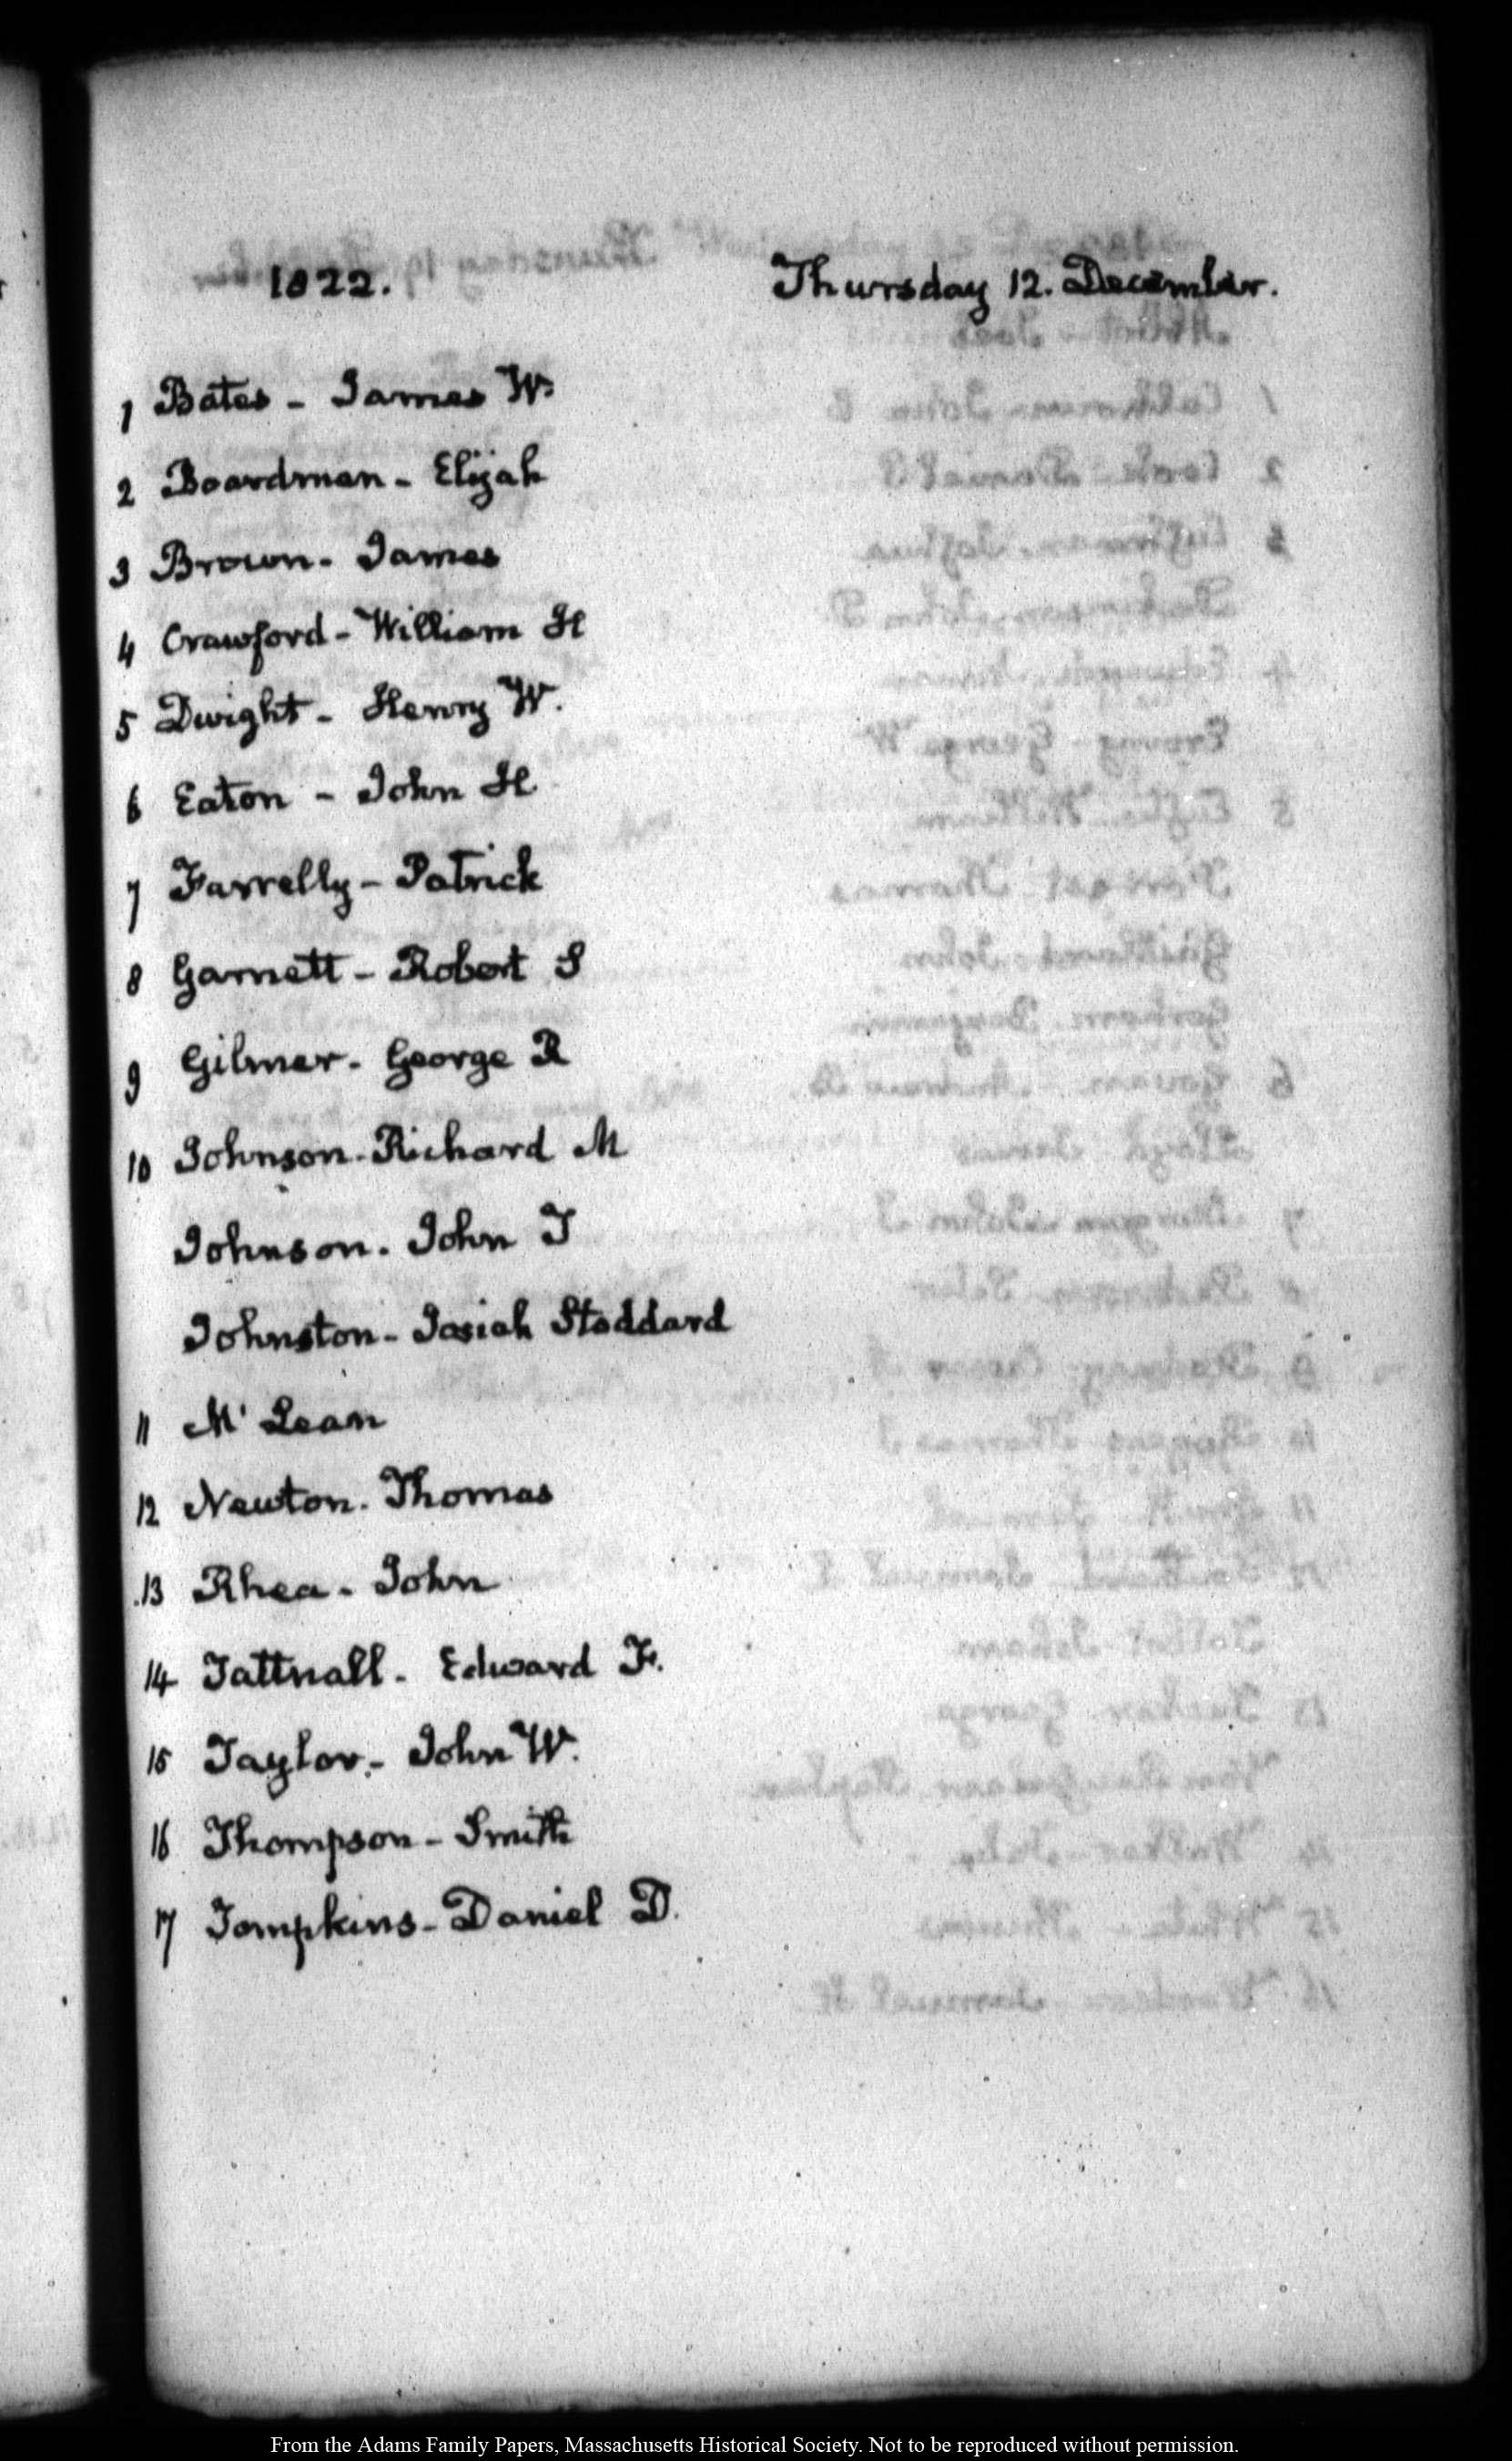 1822. Thursday 12. December.
1 Bates - James W.
2 Boardman - Elijah
3 Brown - James
4 Crawford - William H
5 Dwight - Henry W.
6 Eaton - John H
7 Farrelly - Patrick
8 Garnett - Robert S
9 Gilmer - George R
10 Johnson - Richard M
Johnson. John T
Johnston - Josiah Stoddard
11 Mc Lean
12 Newton. Thomas
13 Rhea - John
14 Tattnall - Edward F.
15 Taylor - John W.
16 Thompson - Smith
17 Tompkins - Daniel D.
From the Adams Family Papers, Massachusetts Historical Society. Not to be reproduced without permission.